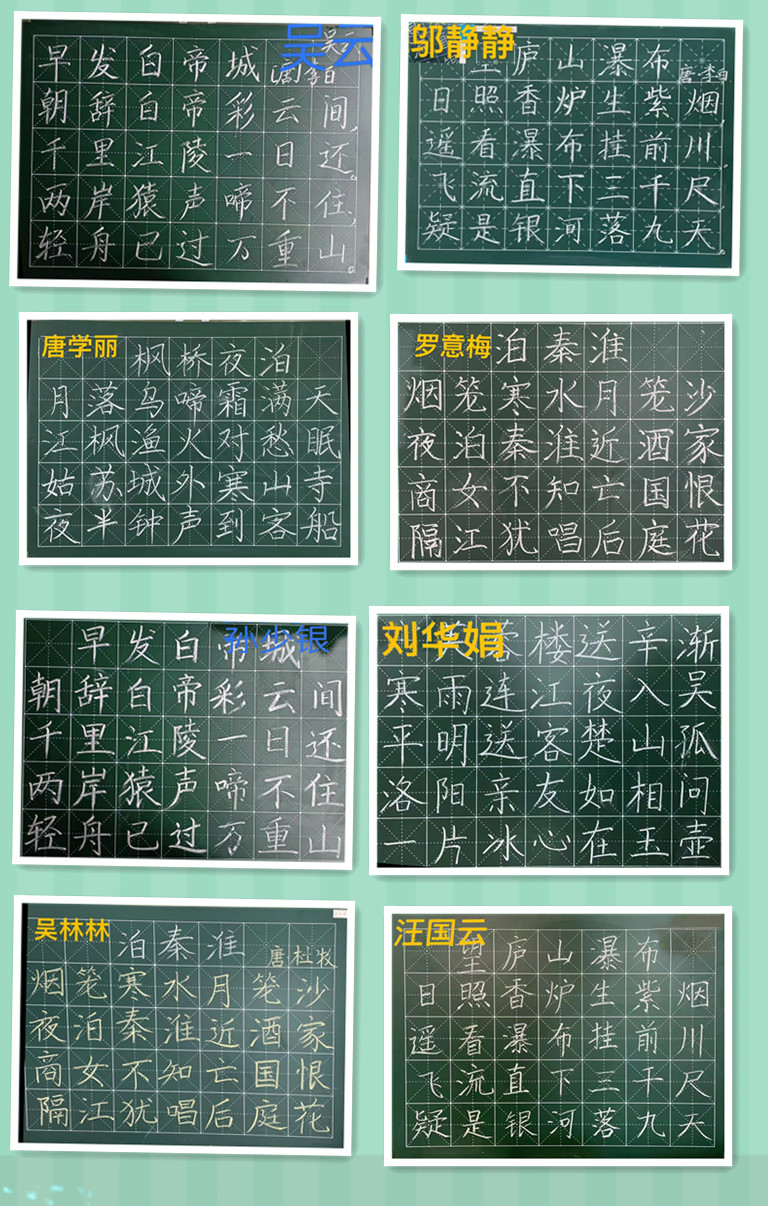 吴云
吴云
早发白帝城 (唐)李白
朝辞白帝彩云间,
千里江陵一日还。
两岸猿声啼不住,
轻舟已过万重山。
邬静静
望庐山瀑布 唐·李白
日照香炉生紫烟,
遥看瀑布挂前川
飞流直下三千尺
疑是银河落九天。
唐学丽
枫桥夜泊
月落乌啼霜满天
江枫渔火对愁眠
姑苏城外寒山寺
夜半钟声到客船
罗意梅
泊秦淮
烟笼寒水月笼沙
夜泊秦淮近酒家
商女不知亡国恨
隔江犹唱后庭花
孙少银
早发白帝城
朝辞白帝彩云间
千里江陵一日还
两岸猿声啼不住
轻舟已过万重山
刘华娟
芙蓉楼送辛渐
寒雨连江夜入吴
平明送客楚山孤
洛阳亲友如相问
一片冰心在玉壶
吴林林
泊秦淮 唐 杜牧
烟笼寒水月笼沙
夜泊秦淮近酒家
商女不知亡国恨
隔江犹唱后庭花
汪国云
望庐山瀑布
日照香炉生紫烟
遥看瀑布挂前川
飞流直下三千尺
疑是银河落九天